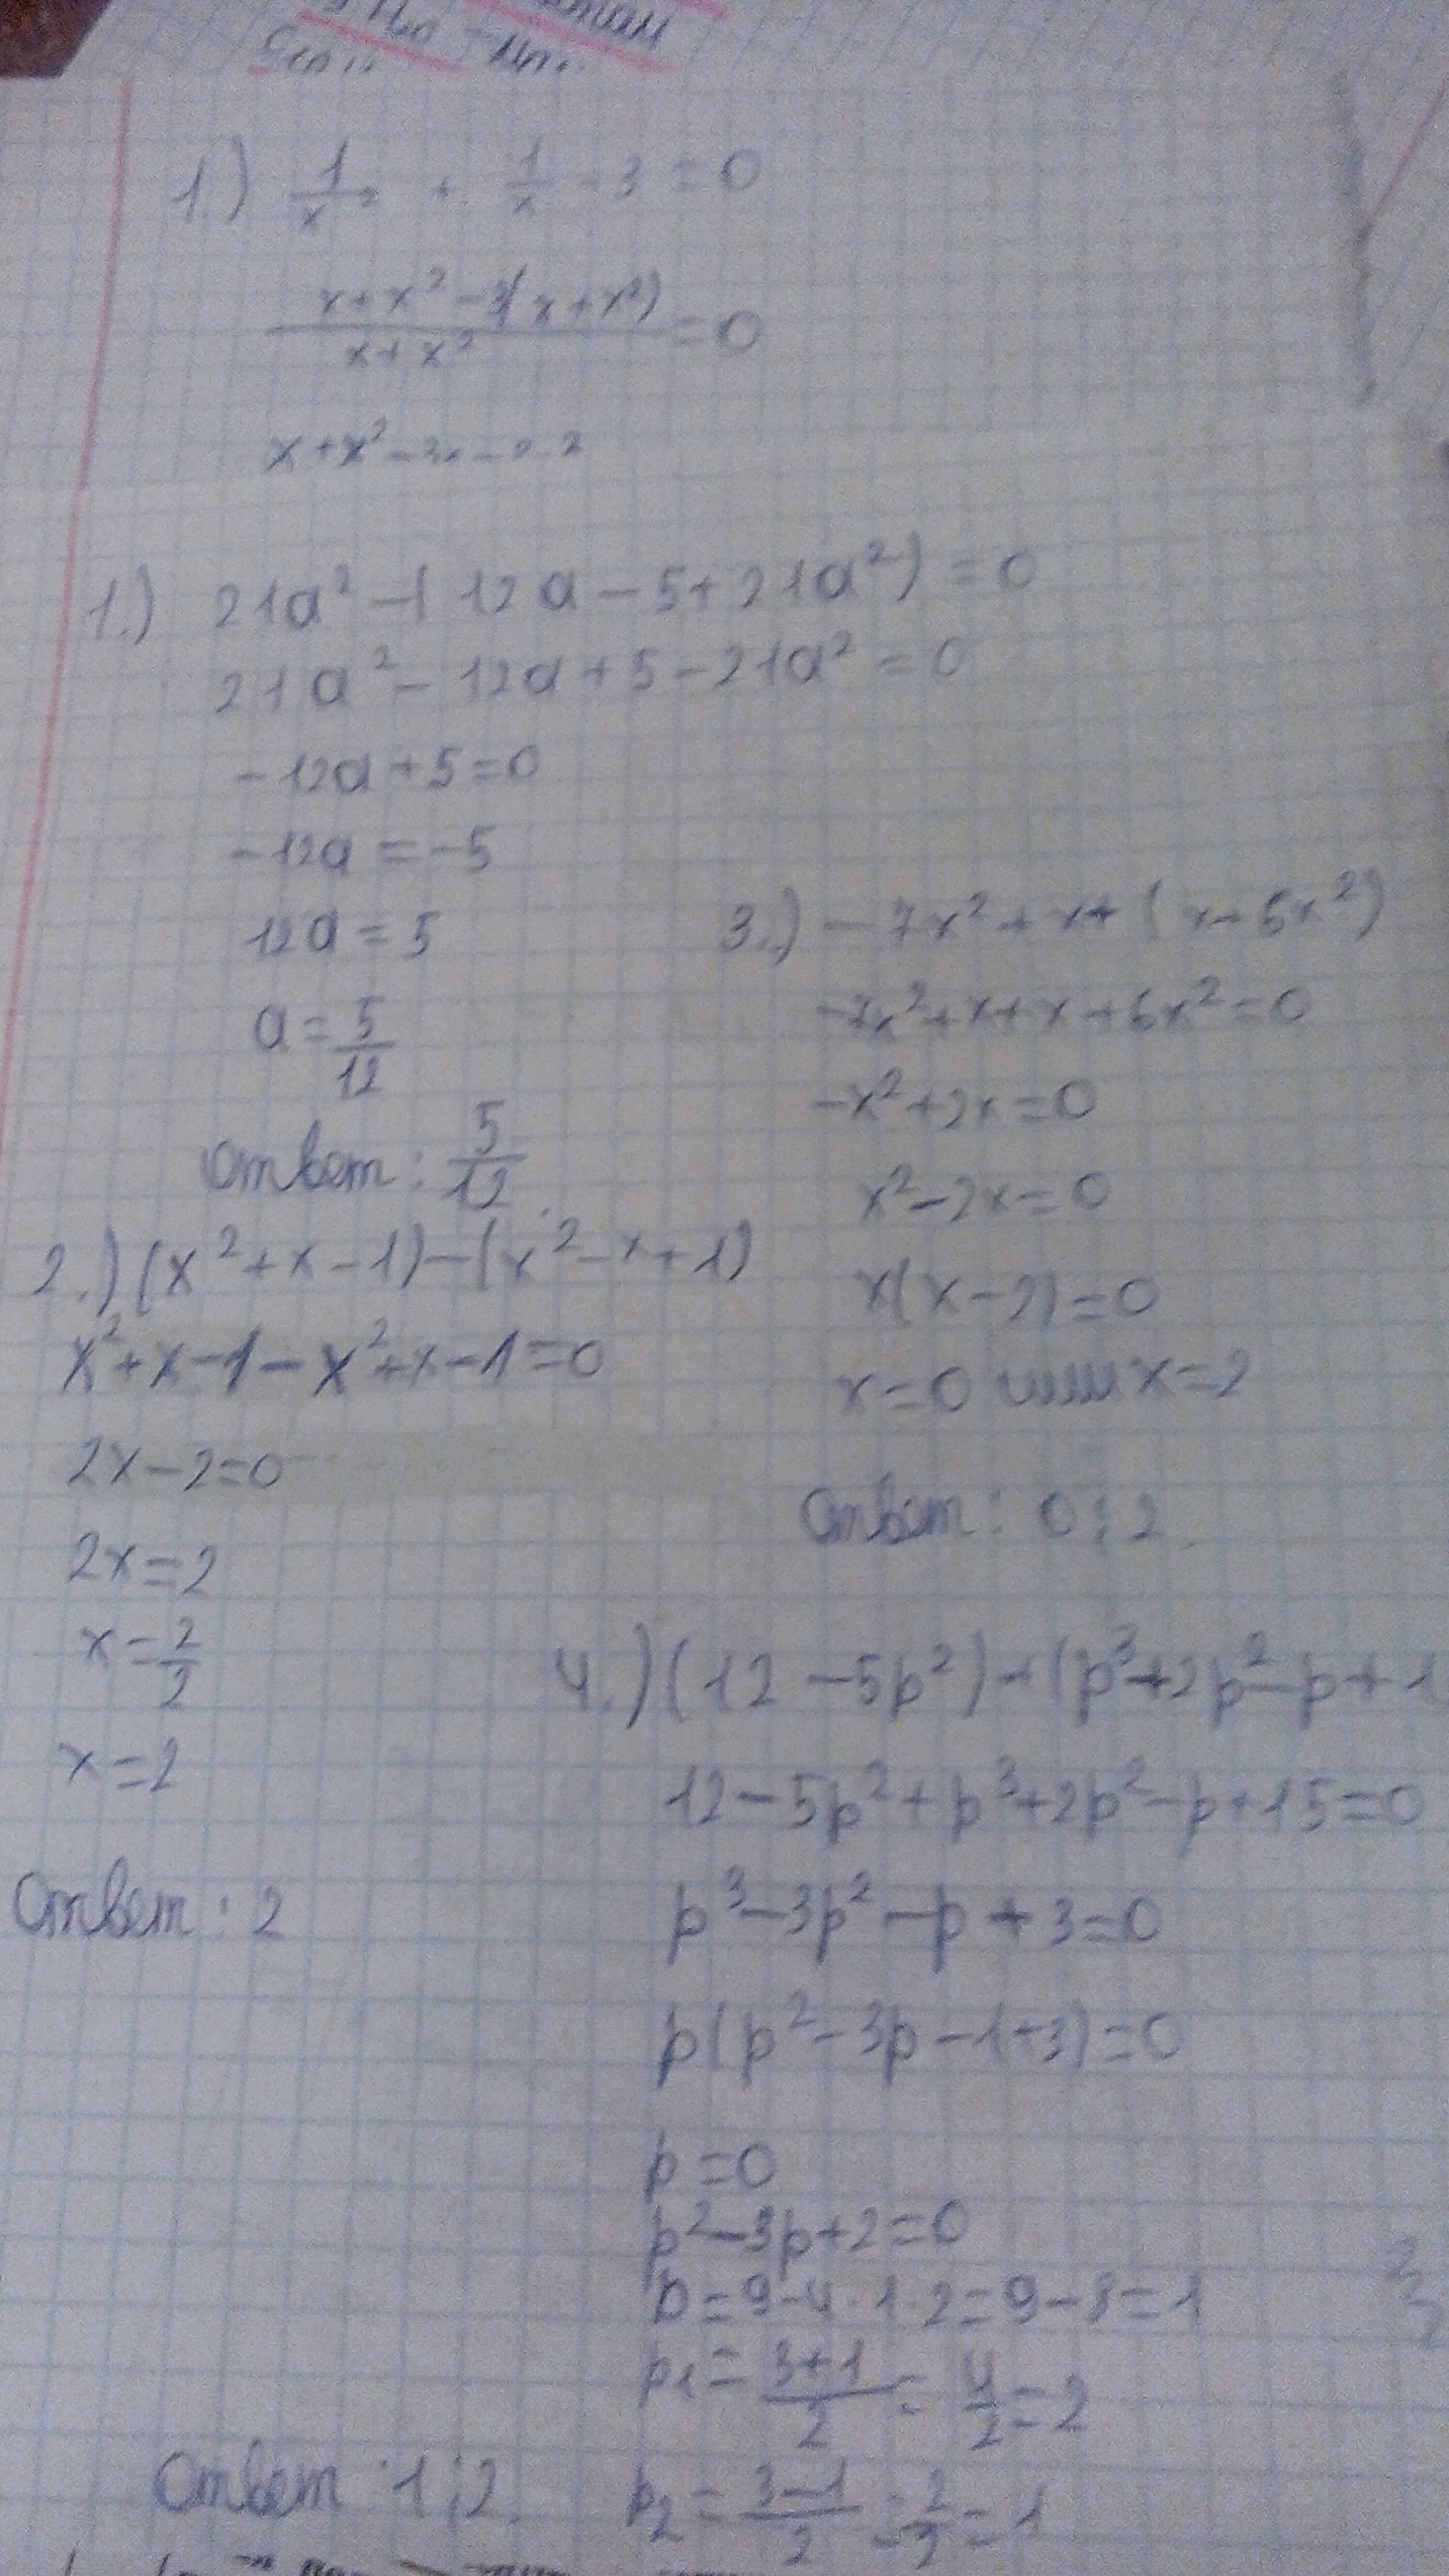 1.) 1/x² + 1/x - 3 = 0
(x + x² - 3(x + x²))/(x + x²) = 0
1.) 21a² - (12a - 5 + 21a²) = 0
21a² - 12a + 5 - 21a² = 0
-12a + 5 = 0
-12a = -5
12a = 5
a = 5/12
Ответ: 5/12.
2.) (x² + x - 1) - (x² - x + 1)
x² + x - 1 - x² + x - 1 = 0
2x - 2 = 0
2x = 2
x = 2/2
x = 2
Ответ: 2
3.) - 7x² + x + (x + 6x²)
-7x² + x + x + 6x² = 0
-x² + 2x = 0
x² - 2x = 0
x(x - 2) = 0
x = 0 или x = 2
Ответ: 0; 2.
4.) (12 - 5p²) + (p³ + 2p² - p + 1
12 - 5p² + p³ + 2p² - p + 15 = 0
p³ - 3p² - p + 3 = 0
p(p² - 3p - 1 + 3) = 0
p = 0
p² - 3p + 2 = 0
D = 9 - 4 · 1 · 2 = 9 - 8 = 1
p1 = (3+1)/2 = 4/2 = 2
p2 = (3-1)/2 = 2/2 = 1
Ответ: 1; 2.